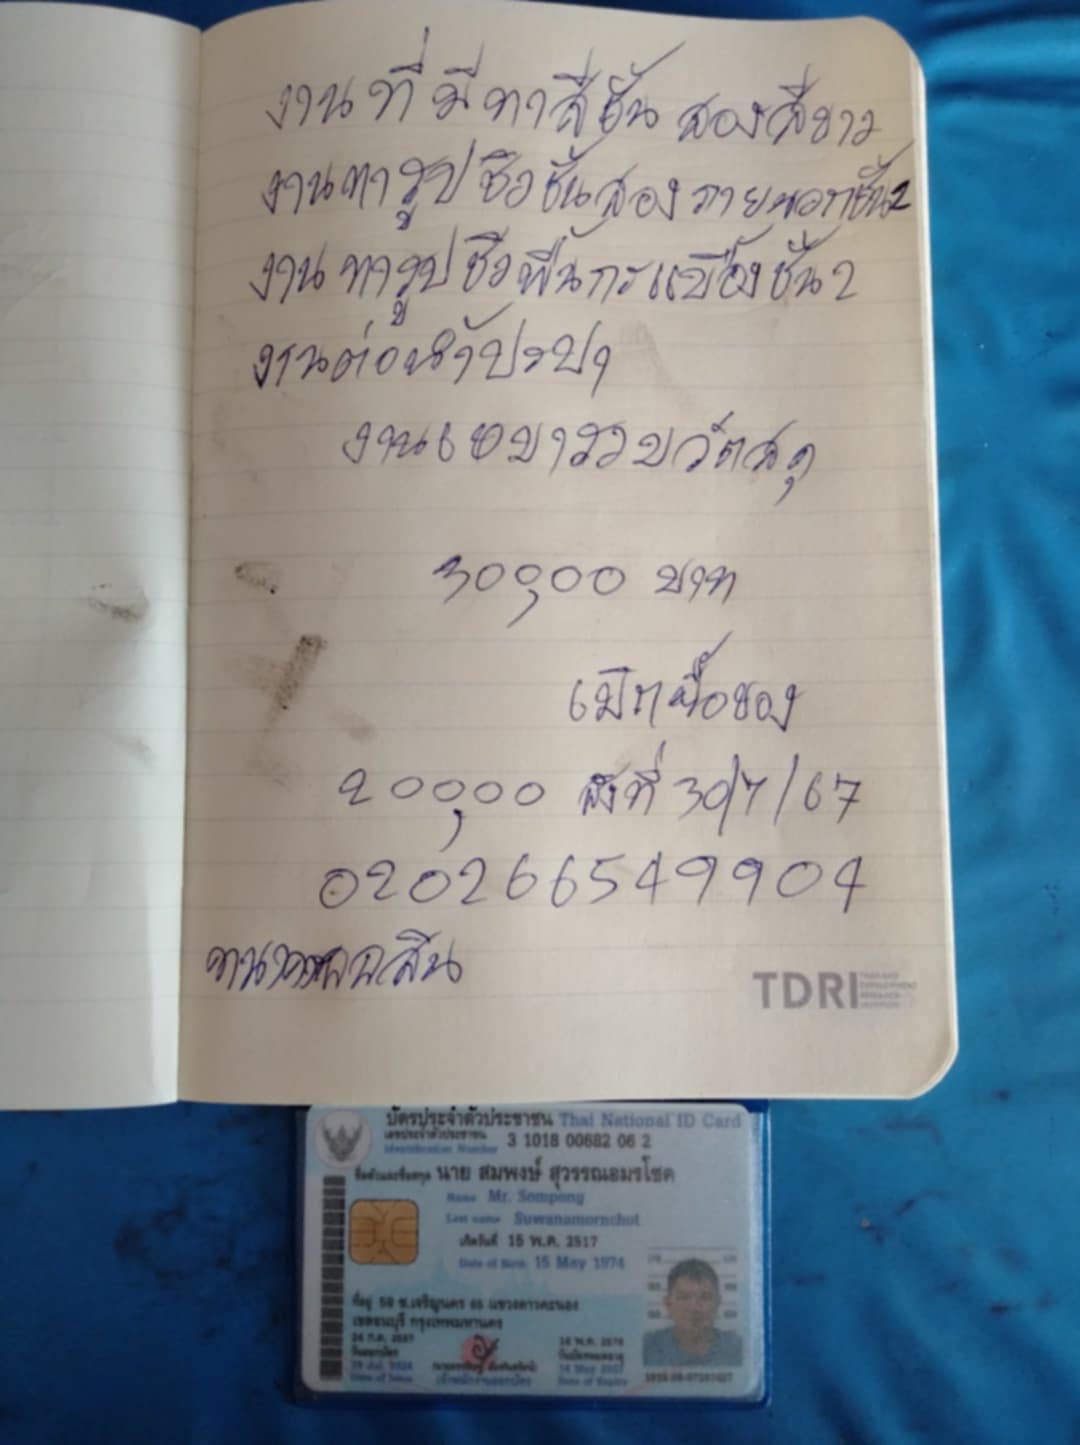 งานที่มีทาสีชั้นสองสีขาว
งานทารูปซิวชั้นสองภายนอกชั้น2
งานทารูปซิวพื้นกระเบื้องชั้น2
งานต่อน้ำปะปา
งานเหมารวมวัตสดุ
30,000 บาท
เบิกซื้อของ
20,000 สั่งที่ 30/7/67
020266549904
ออมสิน
TDRI
THAILAND
DEVELOPMENT
RESEARCH
INSTITUTE
บัตรประจำตัวประชาชน Thai National ID Card
เลขประจำตัวประชาชน
Identification Number 3 1018 00682 06 2
ชื่อตัวและชื่อสกุล นาย สมพงษ์ สุวรรณอมรโชค
Name Mr. Sompong
Last name Suwanamornchot
เกิดวันที่ 15 พ.ค. 2517
Date of Birth 15 May 1974
ที่อยู่ 59 ซ.เจริญนคร 65 แขวงดาวคะนอง
เขตธนบุรี กรุงเทพมหานคร
วันออกบัตร
Date of Issue
เจ้าพนักงานออกบัตร
วันบัตรหมดอายุ
Date of Expiry